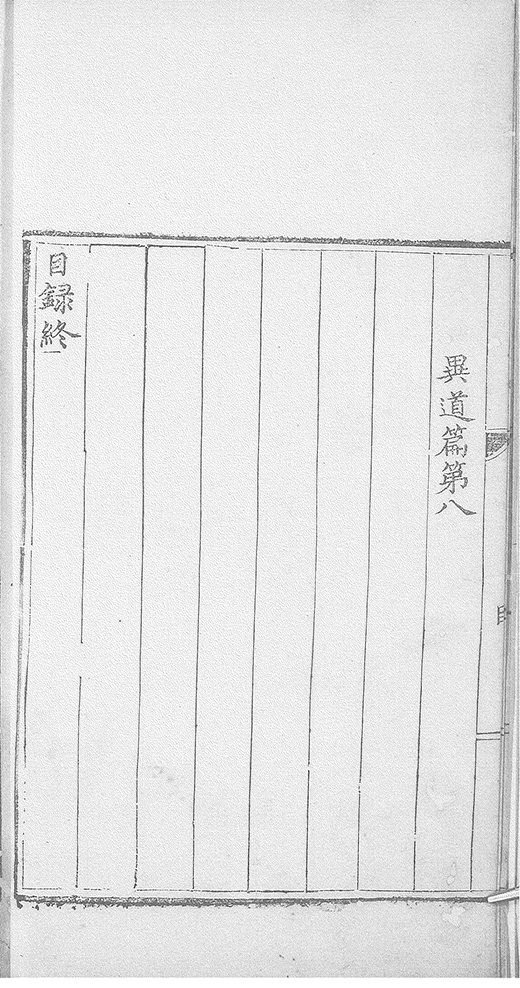 異道篇第八
目録終